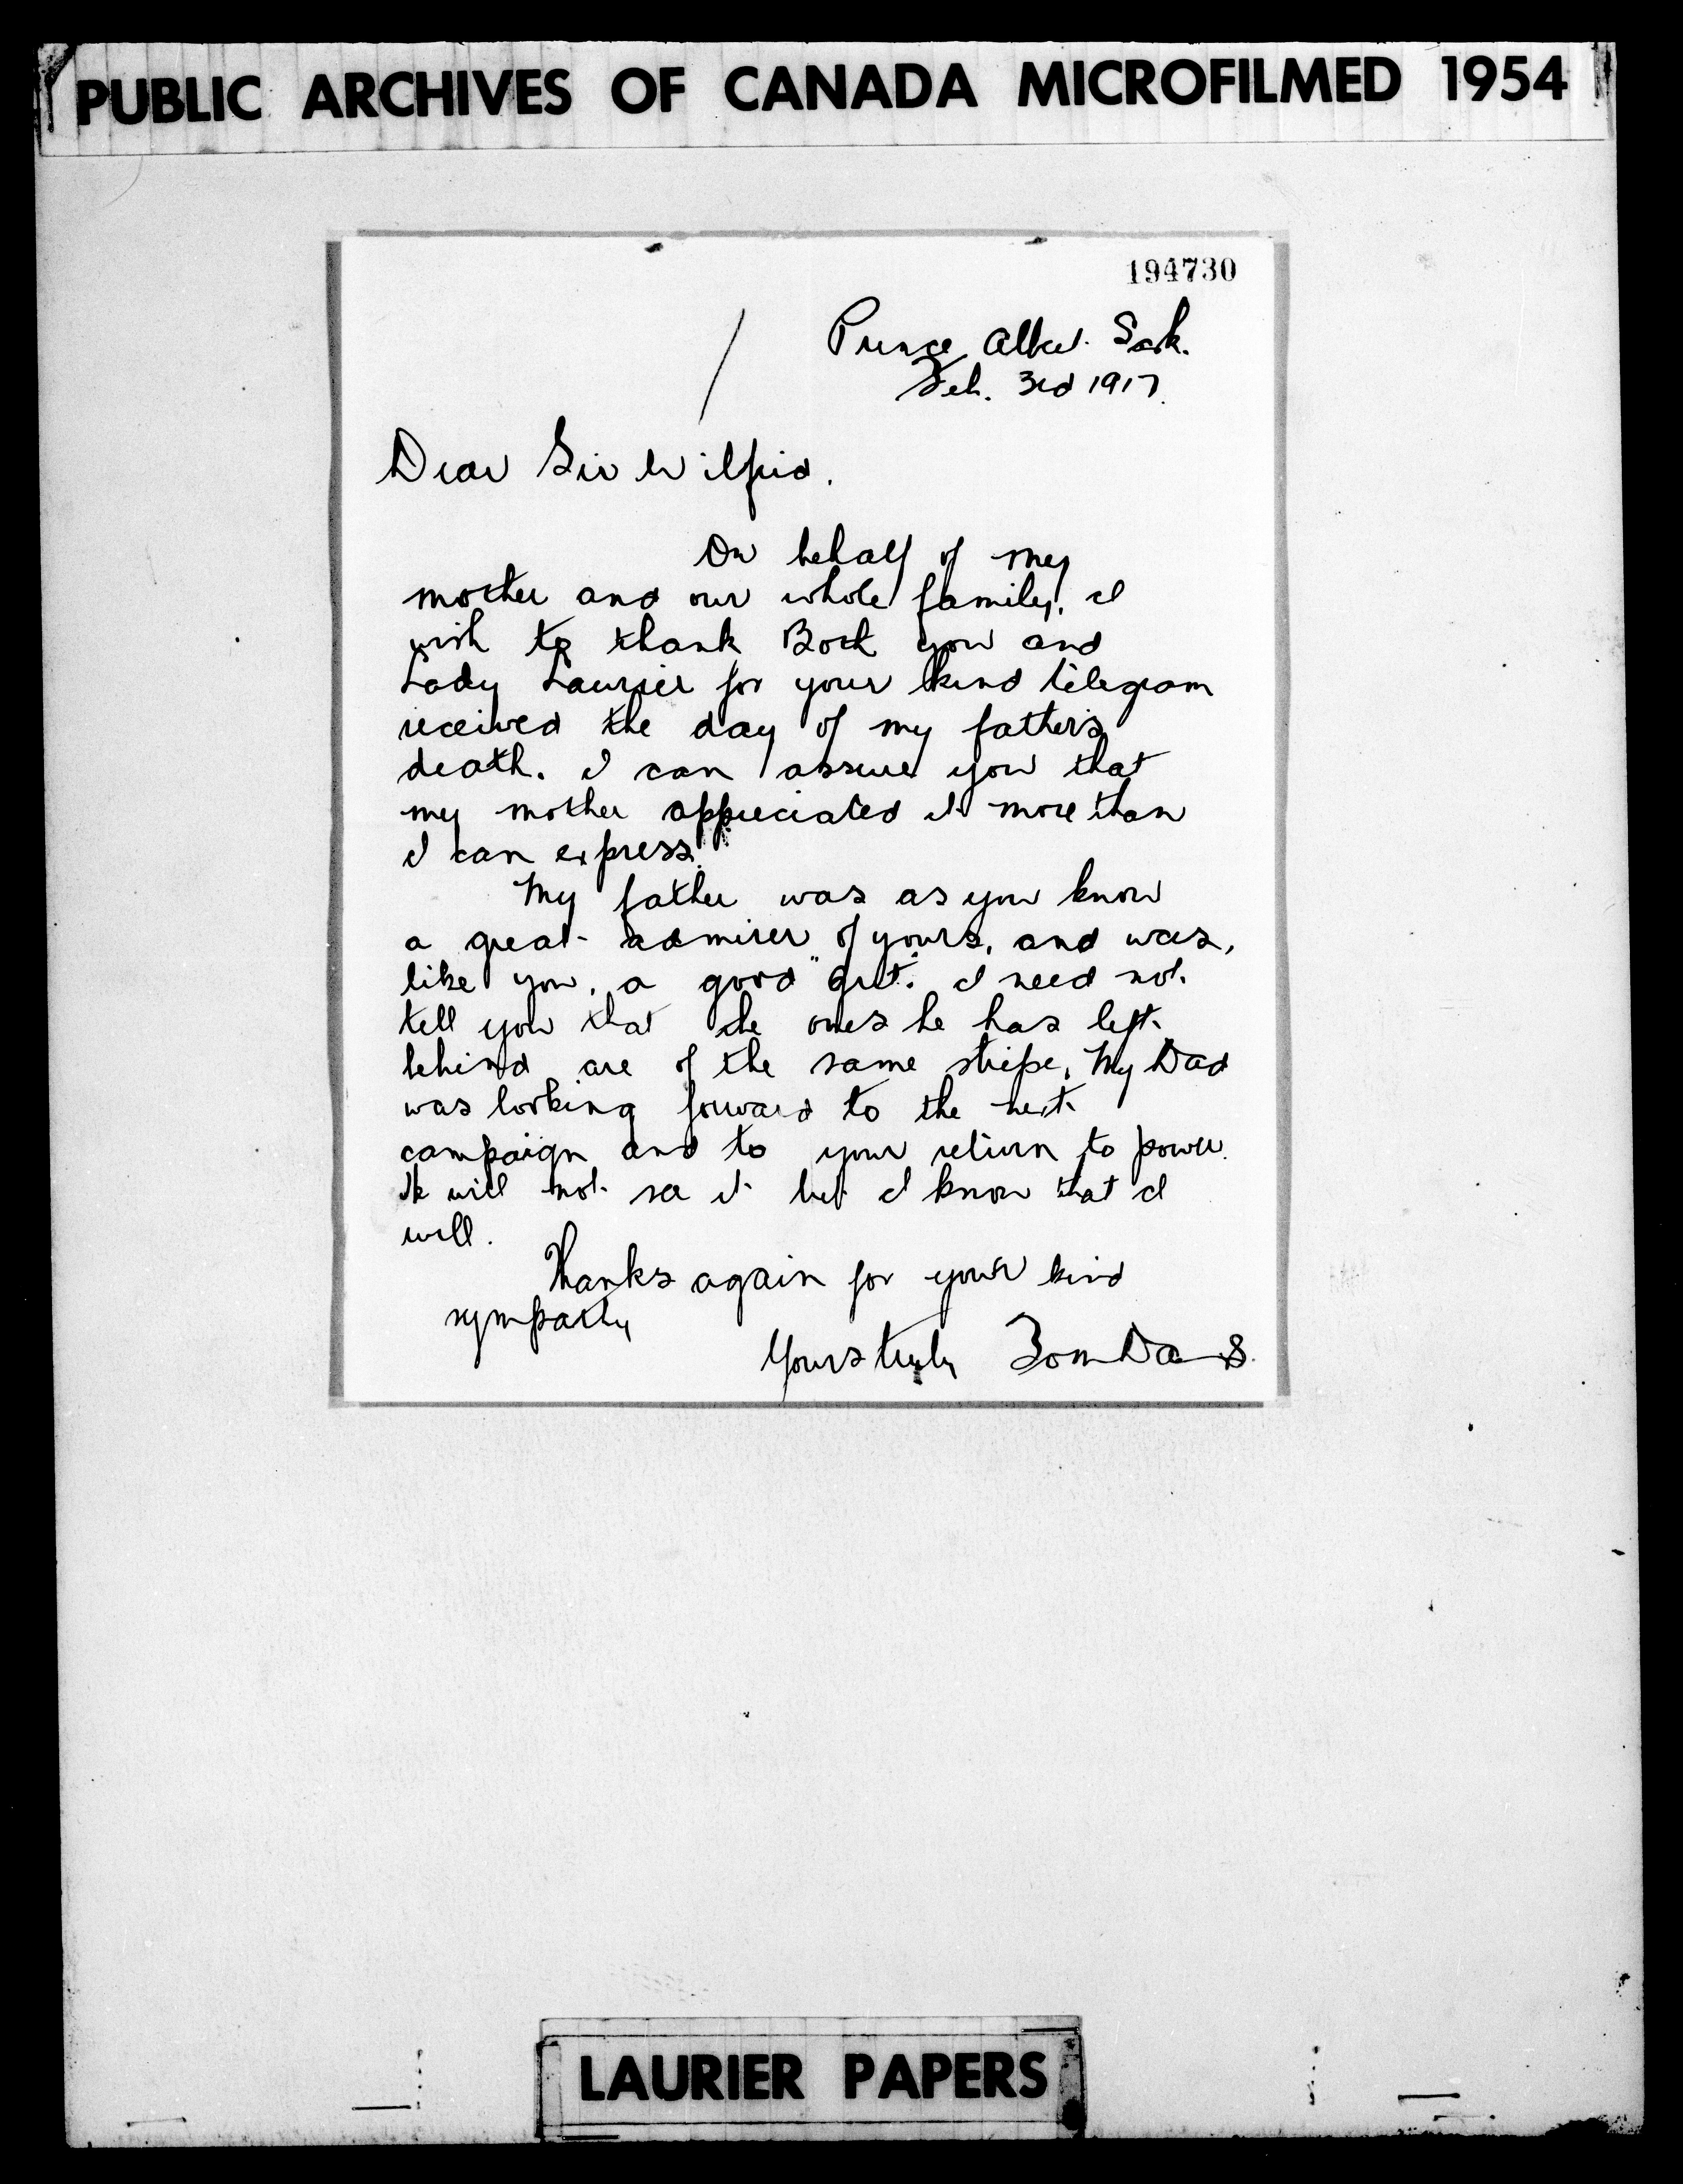 PUBLIC ARCHIVES OF CANADA MICROFILMED 1954
194730
Prince Albert Sask.
Feb. 3rd 1917.
Dear Sir Wilfrid.
On behalf of my
mother and our whole family, I
wish to thank Both you and
Lady Laurier for your kind telegram
received the day of my father's
death. I can assure you that
my mother appreciated it more than
I can express.
My father was as you know
a great admirer of yours, and was,
like you, a good "Grit." I need not
tell you that the ones he has left
behind are of the same stripe. My Dad
was looking forward to the next
campaign and to your return to power.
He will not see it but I know that I
will.
Thanks again for your kind
sympathy
Yours truly Tom Davis.
LAURIER PAPERS